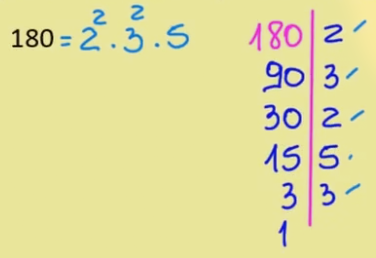 180 = 2² . 3² . 5
180 | 2
90 | 3
30 | 2
15 | 5
3 | 3
1